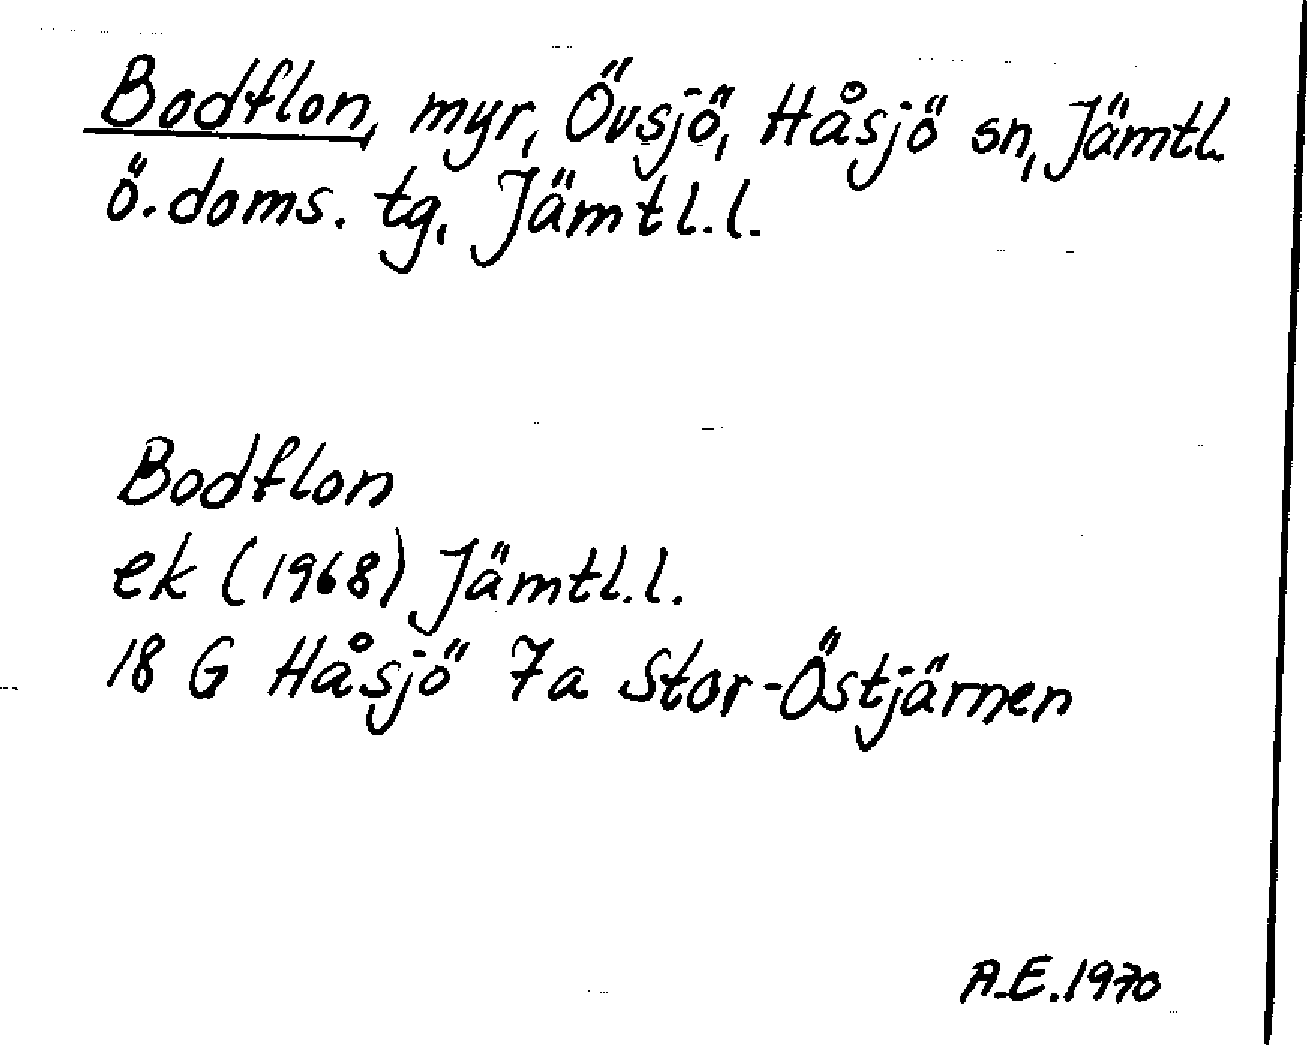 Bodflon, myr, Övsjö, Håsjö sn, Jämtl.
ö. doms. tg, Jämtl. l.
Bodflon
ek (1968) Jämtl. l.
18 G Håsjö 7a Stor-Östjärnen
A.E. 1970